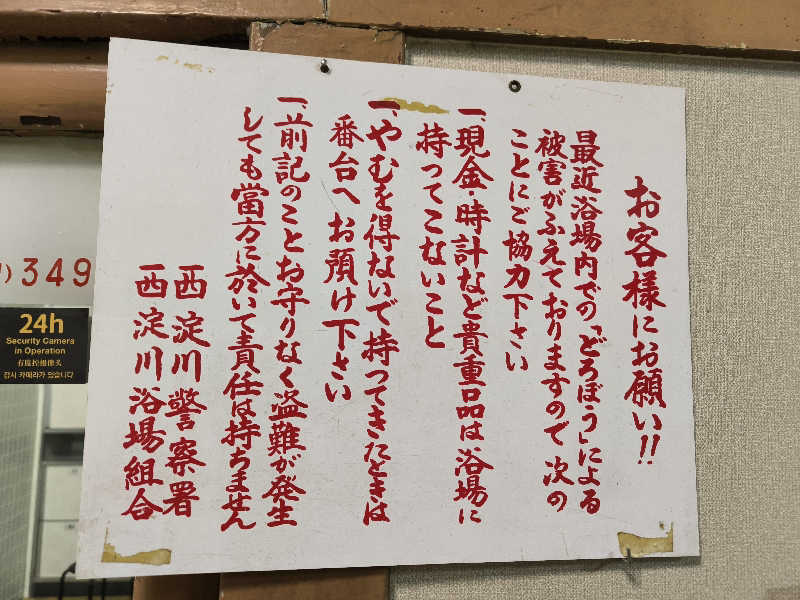 お客様にお願い!!
最近浴場内での「どろぼう」による
被害がふえておりますので 次の
ことにご協力下さい
一、現金・時計など貴重品は浴場に
持ってこないこと
一、やむを得ないで持ってきたときは
番台へお預け下さい
一、前記のことお守りなく盗難が発生
しても當方に於いて責任は持ちません
西淀川警察署
西淀川浴場組合
349
24h
Security Camera
in Operation
감시 카메라가 있습니다